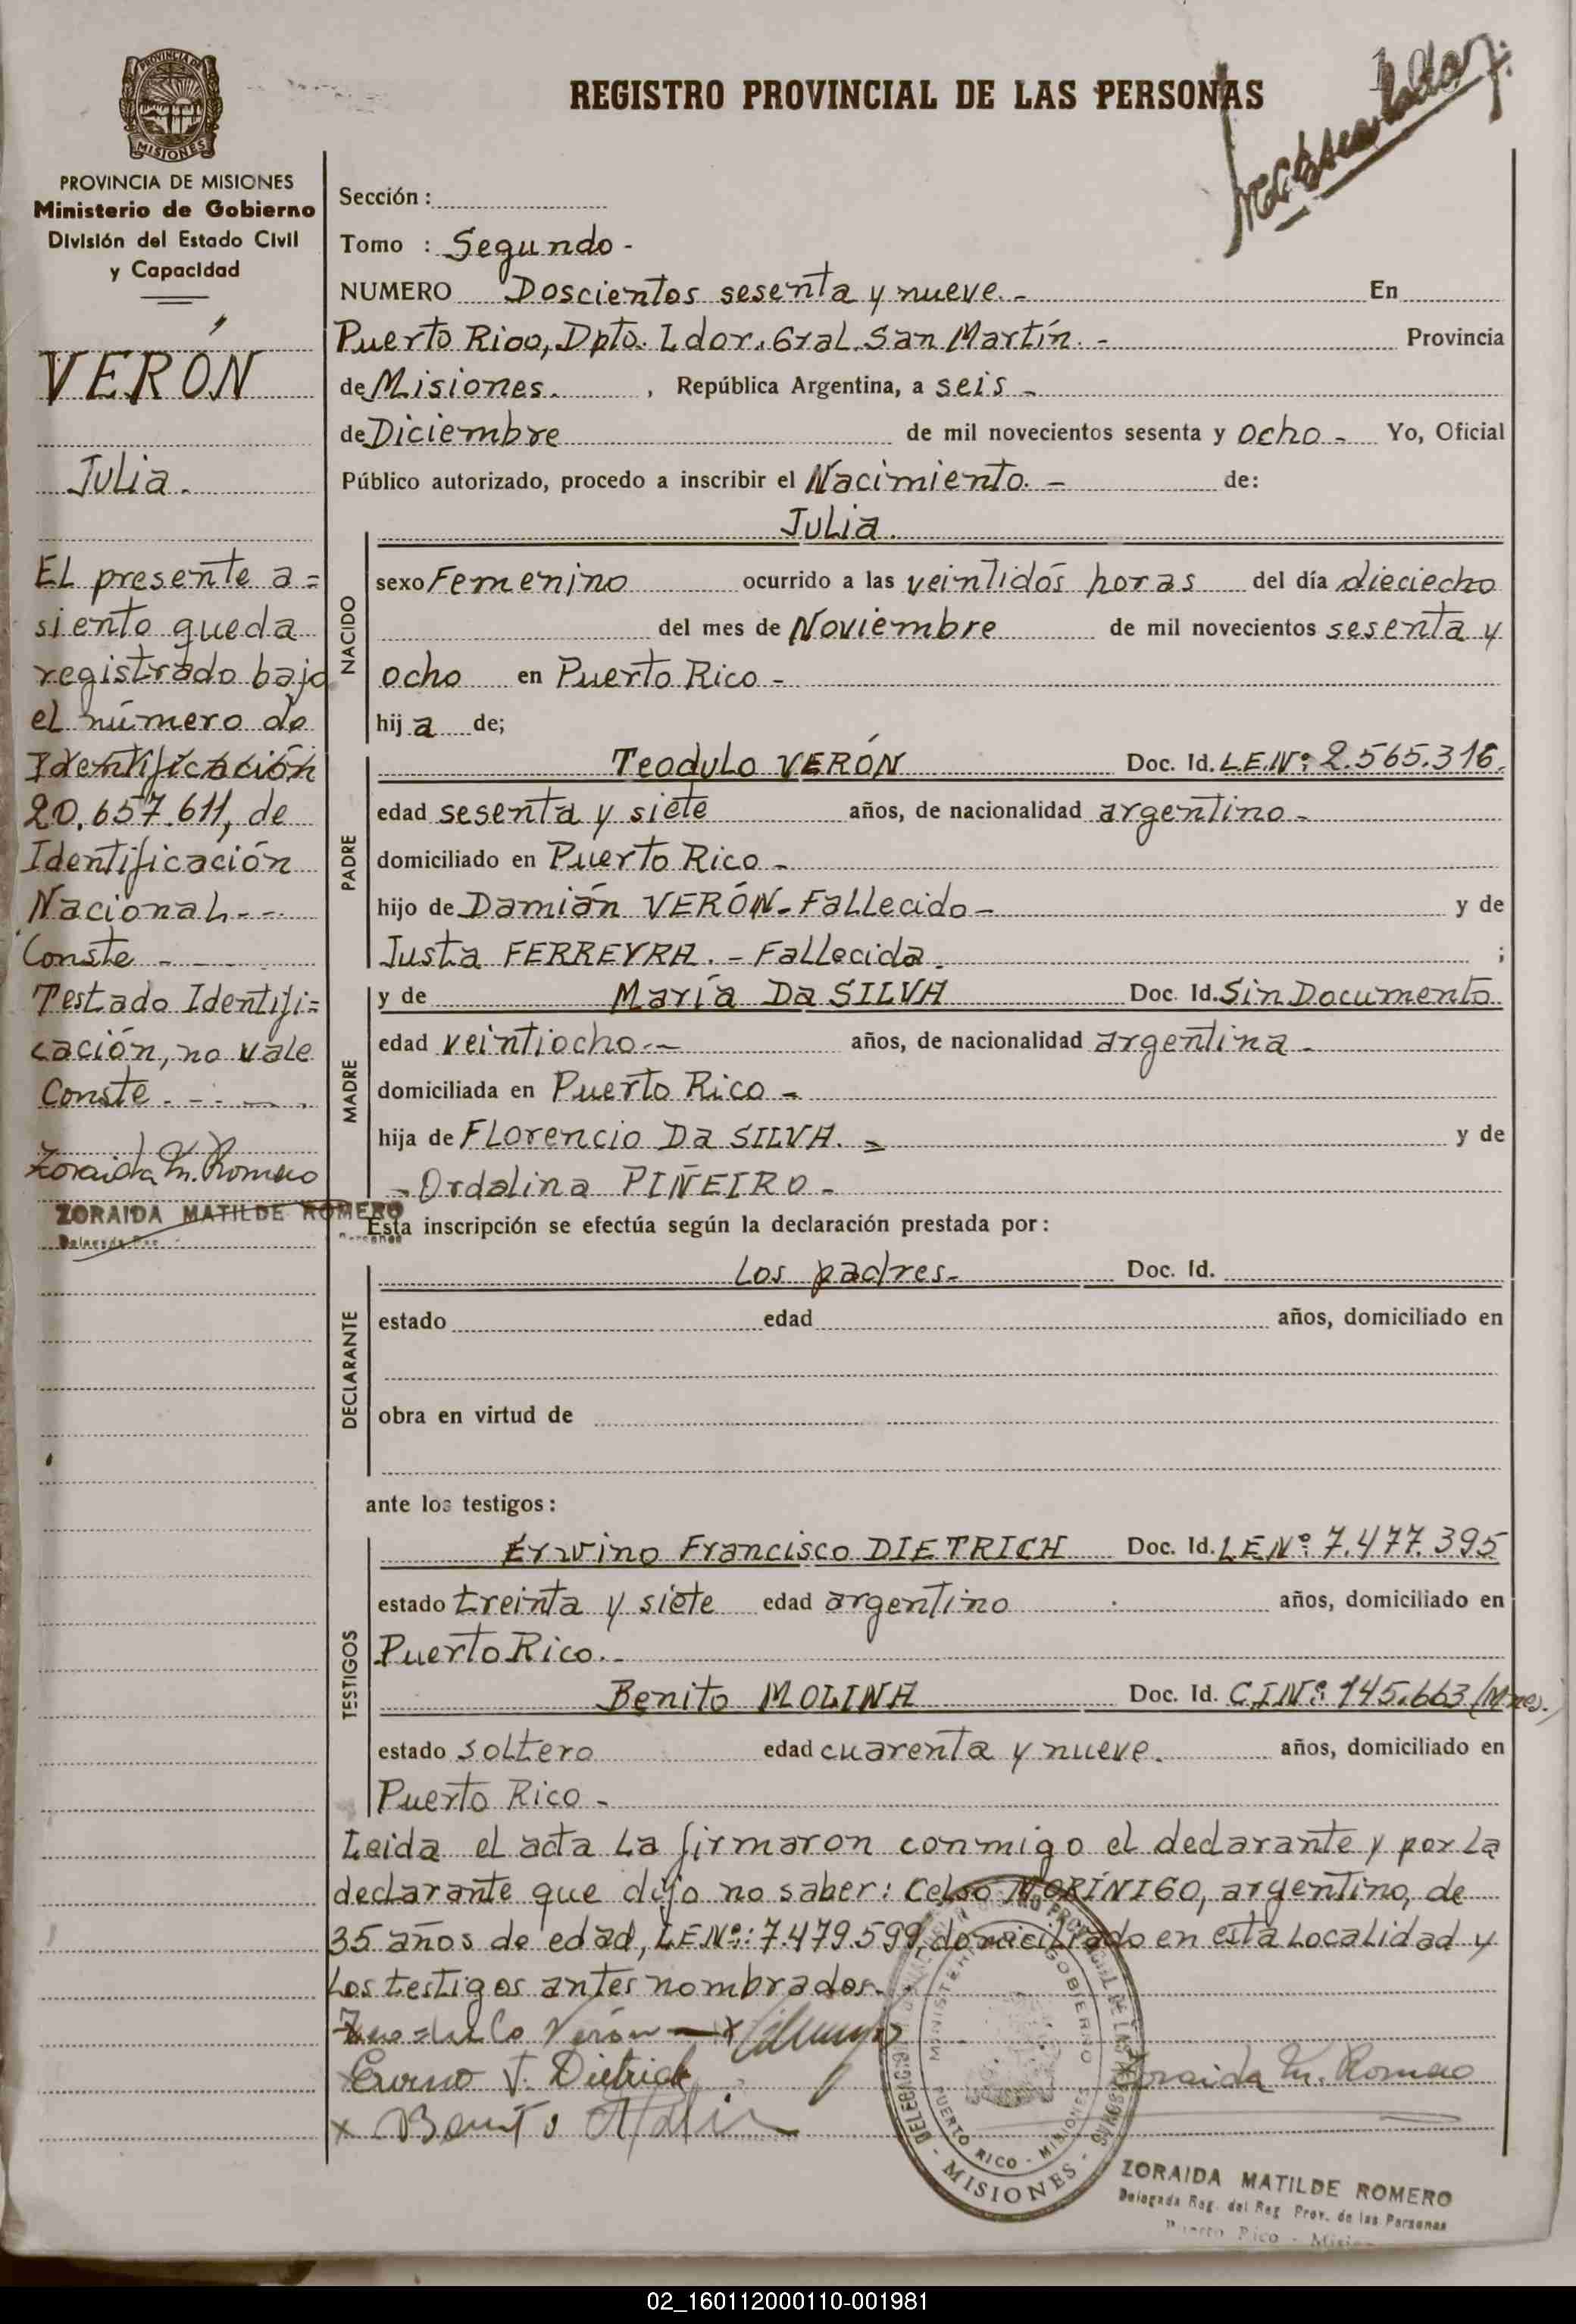 PROVINCIA DE MISIONES
PROVINCIA DE MISIONES
Ministerio de Gobierno
División del Estado Civil
y Capacidad
VERÓN
Julia.
El presente a=
siento queda
registrado bajo
el número de
Identificación
20.657.611, de
Identificación
Nacional.--
Conste -
Testado Identifi=
cación, no vale
Conste.
Zoraida M. Romero
ZORAIDA MATILDE ROMERO
REGISTRO PROVINCIAL DE LAS PERSONAS
Sección :
Tomo : Segundo -
NUMERO Doscientos sesenta y nueve.- En
Puerto Rico, Dpto. Ldor. Gral. San Martín. - Provincia
de Misiones. , República Argentina, a seis -
de Diciembre de mil novecientos sesenta y ocho - Yo, Oficial
Público autorizado, procedo a inscribir el Nacimiento. - de:
Julia.
NACIDO
sexo Femenino ocurrido a las veintidós horas del día dieciecho
del mes de Noviembre de mil novecientos sesenta y
ocho en Puerto Rico -
hij a de;
PADRE
Teodulo VERÓN Doc. Id. L.E.Nº: 2.565.316.
edad sesenta y siete años, de nacionalidad argentino -
domiciliado en Puerto Rico -
hijo de Damián VERÓN - Fallecido - y de
Justa FERREYRA. - Fallecida. ;
MADRE
y de María Da SILVA Doc. Id. Sin Documento
edad veintiocho.- años, de nacionalidad argentina -
domiciliada en Puerto Rico -
hija de Florencio Da SILVA. = y de
- Ordalina PIÑEIRO -
Esta inscripción se efectúa según la declaración prestada por :
DECLARANTE
Los padres- Doc. Id.
estado edad años, domiciliado en
obra en virtud de
ante los testigos :
TESTIGOS
Erwino Francisco DIETRICH Doc. Id. L.E.Nº: 7.477.395
estado treinta y siete edad argentino años, domiciliado en
Puerto Rico.-
Benito MOLINA Doc. Id. C.I.Nº: 145.663 (Mnes).
estado soltero edad cuarenta y nueve. años, domiciliado en
Puerto Rico -
Leida el acta la firmaron conmigo el declarante y por la
declarante que dijo no saber: Celso MORÍNIGO, argentino, de
35 años de edad, L.E.Nº: 7.479.599, domiciliado en esta Localidad y
Los testigos antes nombrados.
Teodulo Verón
Erwino F. Dietrich
x Benito
Zoraida M. Romero
MINISTERIO GOBIERNO
PUERTO RICO - MISIONES
- MISIONES -
ZORAIDA MATILDE ROMERO
Delegada Reg. del Reg. Prov. de las Personas
Puerto Rico -
02_160112000110-001981